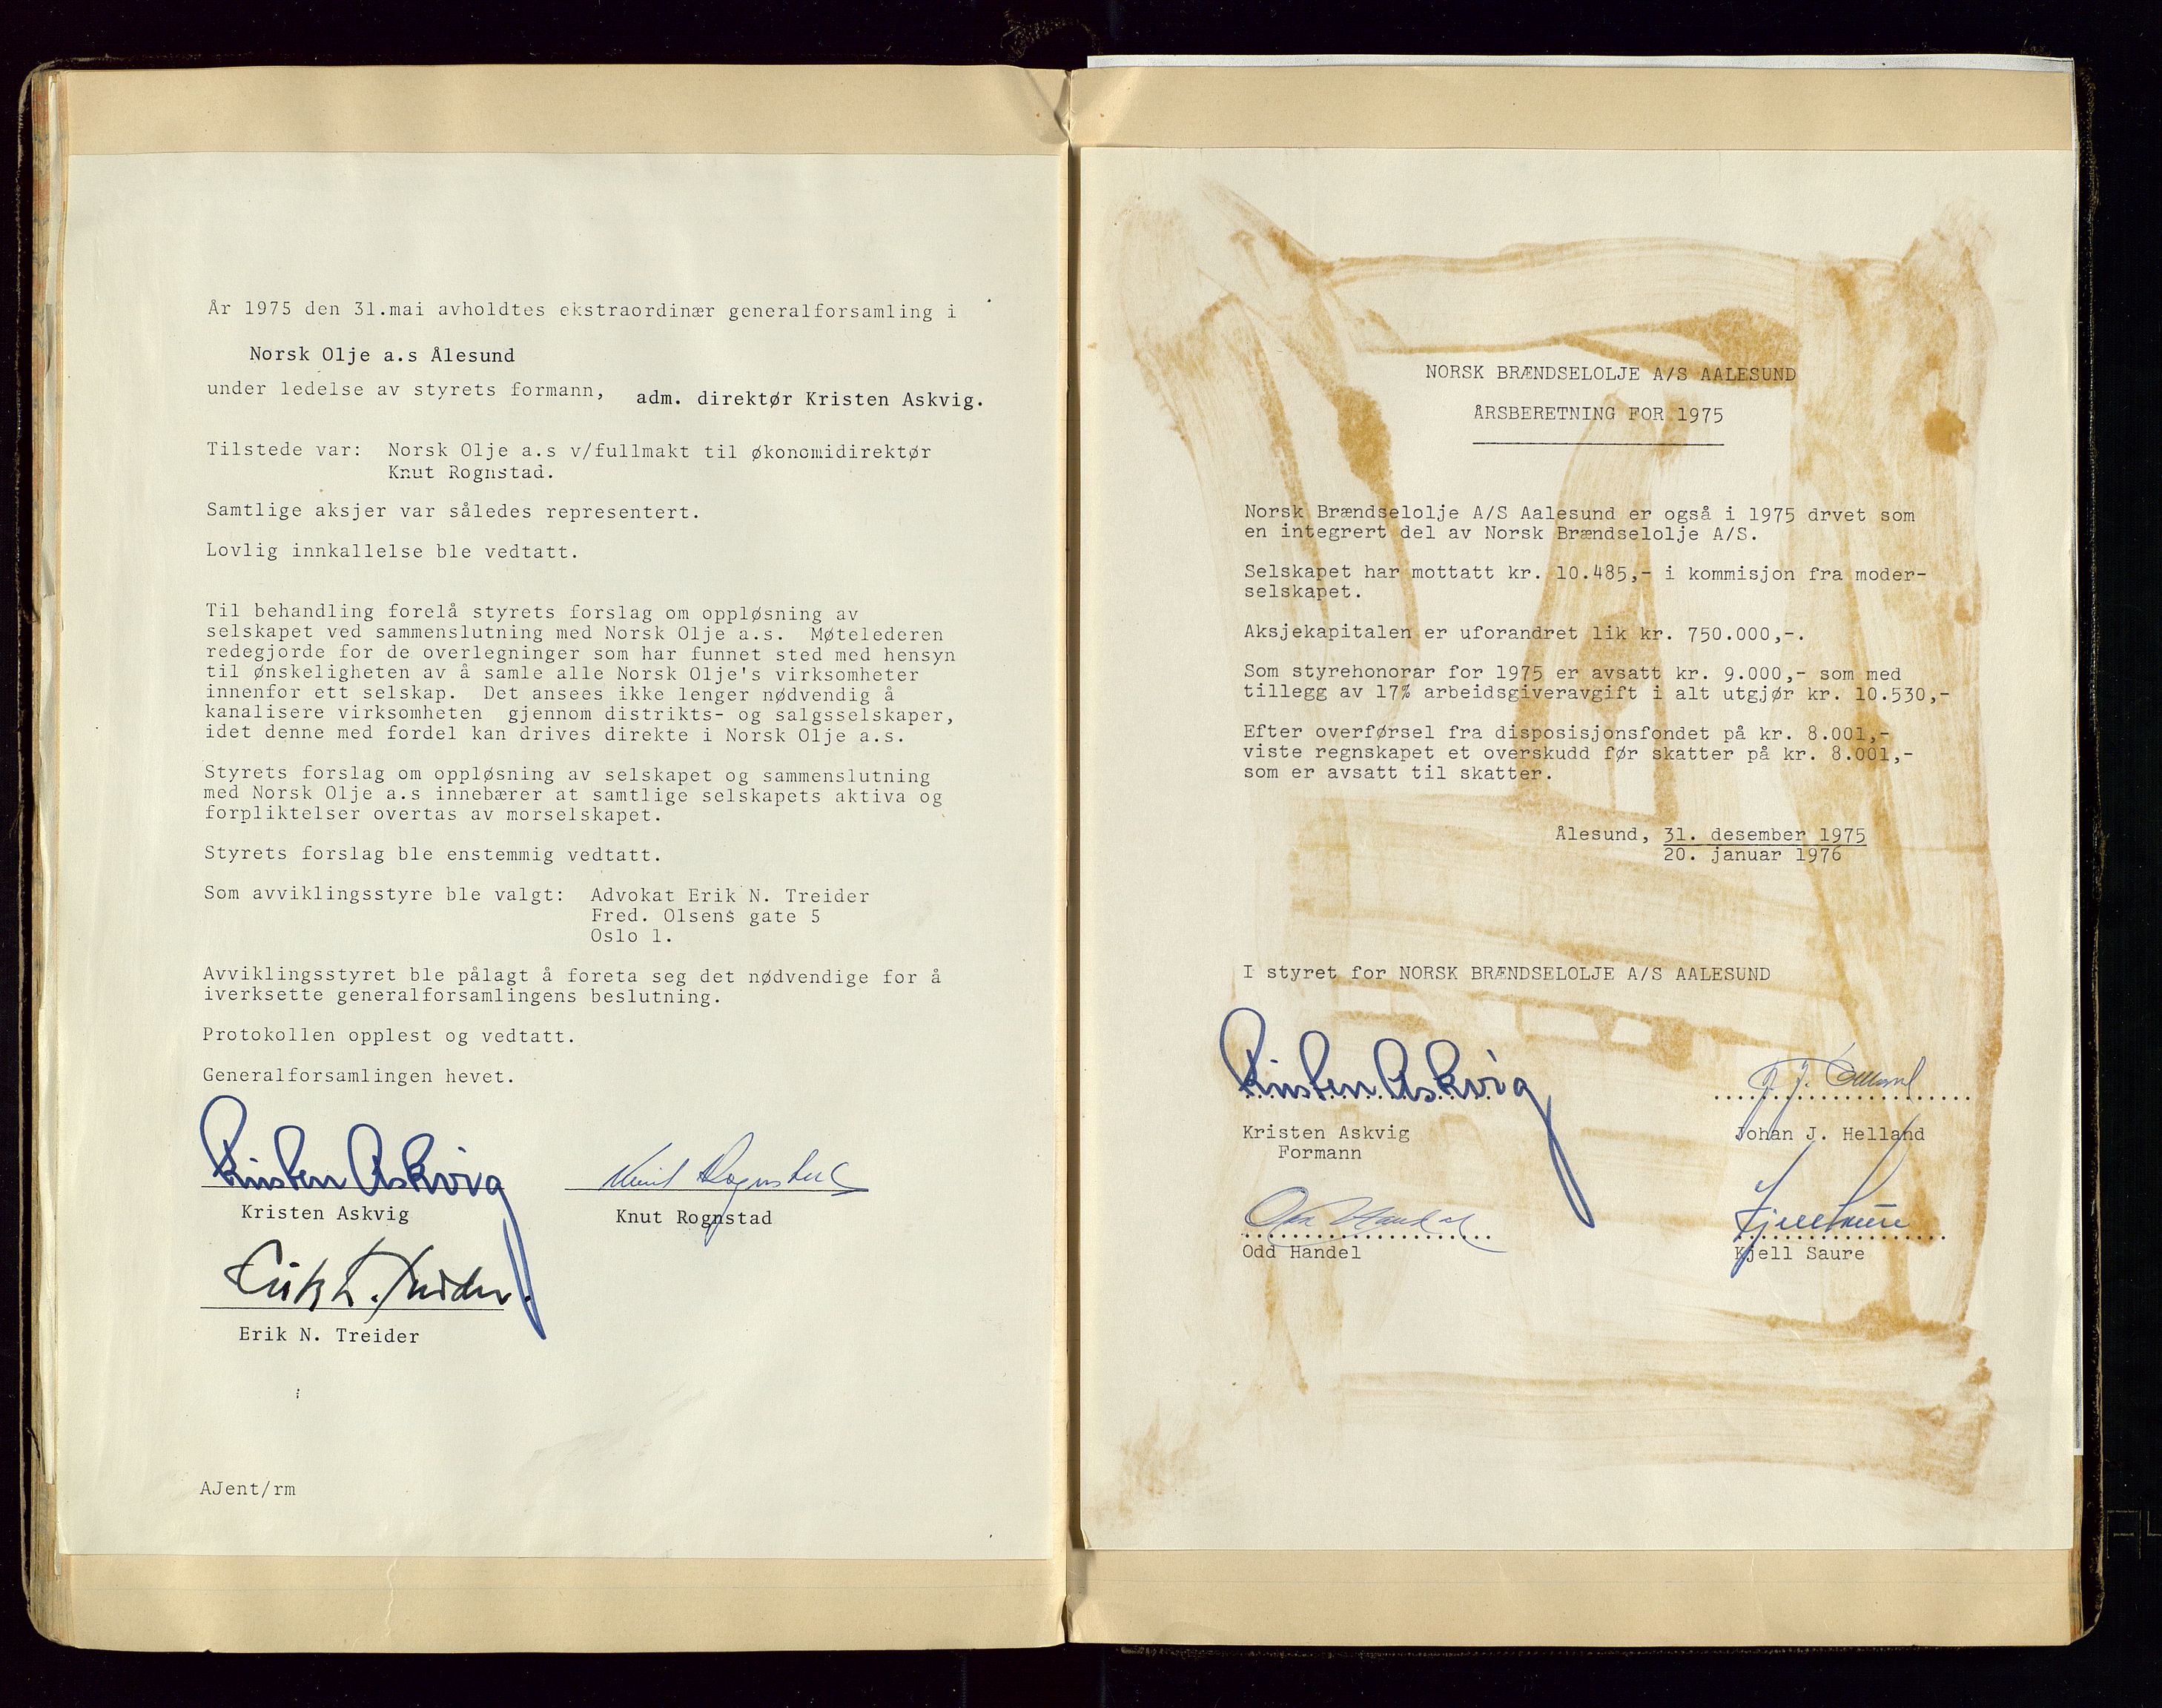 År 1975 den 31.mai avholdtes ekstraordinær generalforsamling i
Norsk Olje a.s Ålesund
under ledelse av styrets formann, adm. direktør Kristen Askvig.
Tilstede var: Norsk Olje a.s v/fullmakt til økonomidirektør
Knut Rognstad.
Samtlige aksjer var således representert.
Lovlig innkallelse ble vedtatt.
Til behandling forelå styrets forslag om oppløsning av
selskapet ved sammenslutning med Norsk Olje a.s. Møtelederen
redegjorde for de overlegninger som har funnet sted med hensyn
til ønskeligheten av å samle alle Norsk Olje's virksomheter
innenfor ett selskap. Det ansees ikke lenger nødvendig å
kanalisere virksomheten gjennom distrikts- og salgsselskaper,
idet denne med fordel kan drives direkte i Norsk Olje a.s.
Styrets forslag om oppløsning av selskapet og sammenslutning
med Norsk Olje a.s innebærer at samtlige selskapets aktiva og
forpliktelser overtas av morselskapet.
Styrets forslag ble enstemmig vedtatt.
Som avviklingsstyre ble valgt: Advokat Erik N. Treider
Fred. Olsens gate 5
Oslo 1.
Avviklingsstyret ble pålagt å foreta seg det nødvendige for å
iverksette generalforsamlingens beslutning.
Protokollen opplest og vedtatt.
Generalforsamlingen hevet.
Kristen Askvig Knut Rognstad
Kristen Askvig Knut Rognstad
Erik N. Treider.
Erik N. Treider
AJent/rm
NORSK BRÆNDSELOLJE A/S AALESUND
ÅRSBERETNING FOR 1975
Norsk Brændselolje A/S Aalesund er også i 1975 drvet som
en integrert del av Norsk Brændselolje A/S.
Selskapet har mottatt kr. 10.485,- i kommisjon fra moder-
selskapet.
Aksjekapitalen er uforandret lik kr. 750.000,-.
Som styrehonorar for 1975 er avsatt kr. 9.000,- som med
tillegg av 17% arbeidsgiveravgift i alt utgjør kr. 10.530,-
Efter overførsel fra disposisjonsfondet på kr. 8.001,-
viste regnskapet et overskudd før skatter på kr. 8.001,-
som er avsatt til skatter.
Ålesund, 31. desember 1975
20. januar 1976
I styret for NORSK BRÆNDSELOLJE A/S AALESUND
Kristen Askvig
Kristen Askvig Johan J. Helland
Formann
Odd Handel Kjell Saure
Odd Handel Kjell Saure